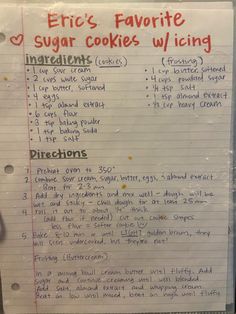 Eric's Favorite
Sugar Cookies w/ icing
ingredients (cookies)
• 1 cup sour cream
• 2 cups white sugar
• 1 cup butter, softened
• 4 eggs
• 1 tsp almond extract
• 6 cups flour
• 3 tsp baking powder
• 1 tsp baking soda
• 1 tsp salt
(frosting)
• 1 cup butter softened
• 4 cups powdered sugar
• 1/4 tsp salt
• 1 tsp almond extract
• 1/3 cup heavy cream
Directions
1. Preheat oven to 350°
2. Combine sour cream, sugar, butter, eggs, & almond extract
- Beat for 2-3 min
3. Add dry ingredients and mix well - dough will be
wet and sticky - chill dough for at least 25 min
4. Roll it out to about 1/4" thick
(add flour if needed) cut out cookie shapes
less flour = softer cookie
5. Bake 8-10 min or until LIGHT golden brown, they
will seem undercooked but they're not!
Frosting (Buttercream)
In a mixing bowl cream butter until fluffy. Add
sugar and continue creaming until well blended.
Add salt, almond extract and whipping cream.
Beat on low until mixed, beat on high until fluffy